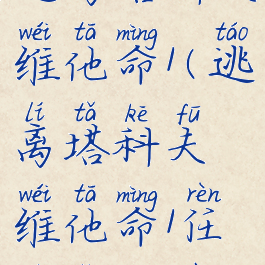 wéi tā mìng táo
维他命1(逃
lí tǎ kē fū
离塔科夫
wéi tā mìng rèn
维他命1任